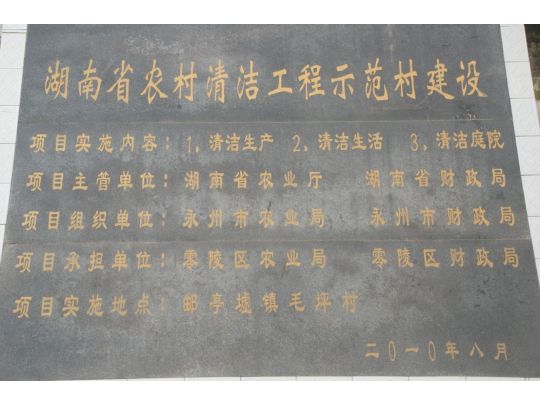 湖南省农村清洁工程示范村建设
项目实施内容：1、清洁生产 2、清洁生活 3、清洁庭院
项目主管单位：湖南省农业厅 湖南省财政局
项目组织单位：永州市农业局 永州市财政局
项目承担单位：零陵区农业局 零陵区财政局
项目实施地点：邮亭墟镇毛坪村
二0一0年八月